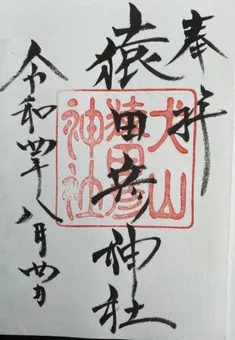 奉拝
猿田彦神社
犬山
猿田彦
神社
令和四年八月四日